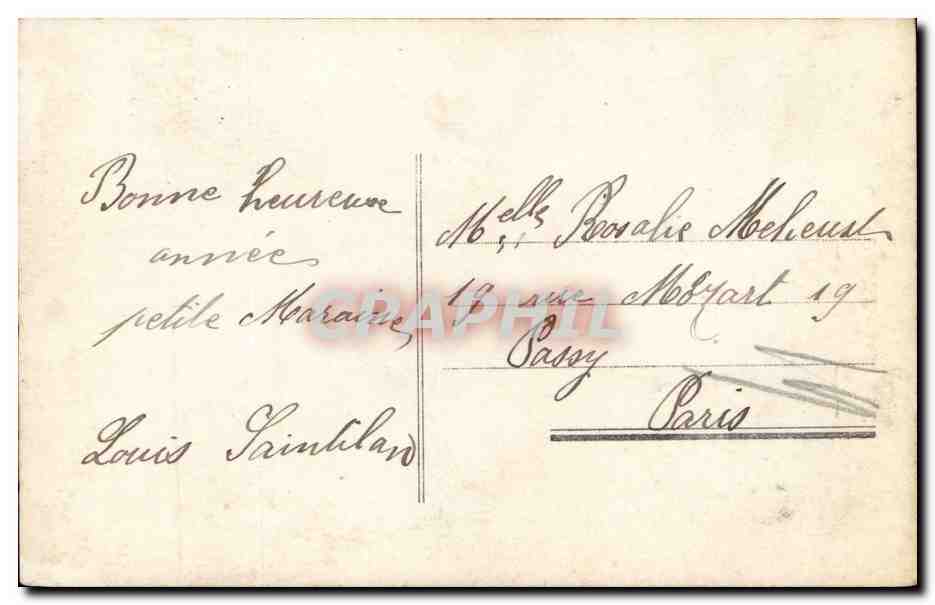 Bonne heureuse
année
petite Maraine
Louis Saintilan
Melle Rosalie Meheust
19 rue Mozart 19
Passy
Paris
CARTAPHIL